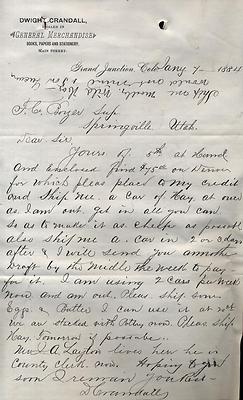 DWIGHT CRANDALL,
DEALER IN
GENERAL MERCHANDISE
BOOKS, PAPERS AND STATIONERY.
MAIN STREET.
Grand Junction, Colo Aug 7 - 1884
Springville Utah.
Dear Sir
Yours of 5th at Hand
and Enclosed find on
for which pleas place to my credit
and Ship me a car of Hay, at once
as I am out. Get in all you can
So as to make it as cheape as possible
also ship me a car in 2 or 3 days
after & I will send you another
Draft by the middle the week to pay
for it. I am using 2 cars per week
now and am out. Pleas ship some
Eggs & Butter I can use it at
We are stocked with now. Pleas Ship
Hay Tomorrow if possable.
Layton lives her he is
County clerk now. Hoping to
soon I remain Yours
D Crandall